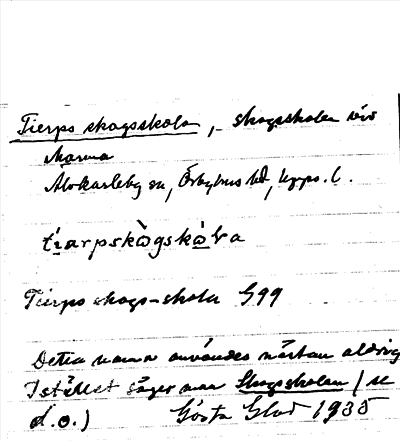 Tierps skogsskola, skogsskolan vid
Marma
Älvkarleby sn, Örbyhus hd, Upps. l.
tìarpskògskòla
Tierps skogs-skola G99
Detta namn användes nästan aldrig
Istället säger man Skogsskolan (se
d.o.) Gösta Glad 1935